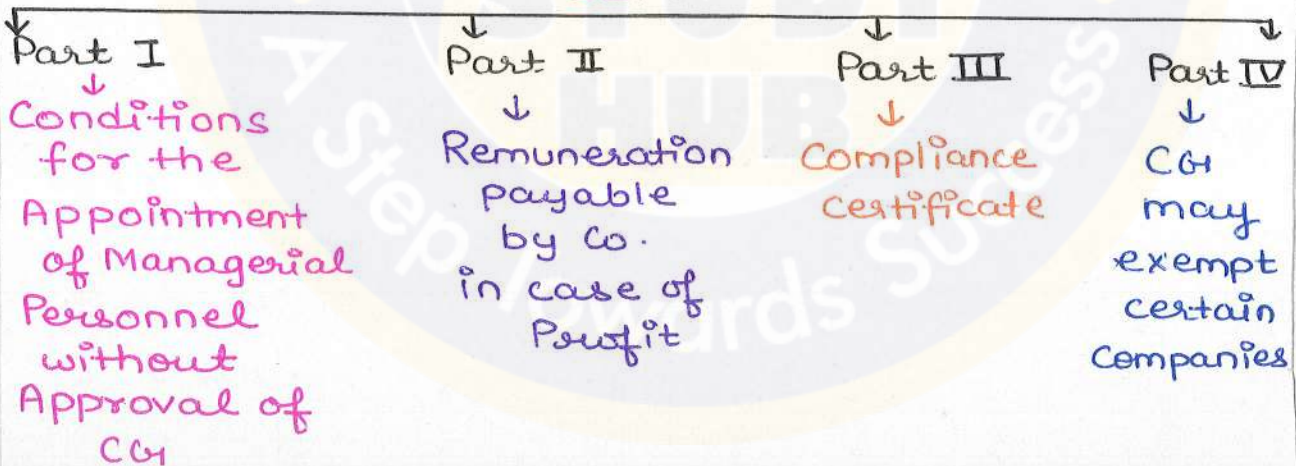 Part I
Conditions
for the
Appointment
of Managerial
Personnel
without
Approval of
CG
Part II
Remuneration
payable
by Co.
in case of
Profit
Part III
Compliance
certificate
Part IV
CG
may
exempt
certain
Companies
STUDY
HUB
A Step Towards Success